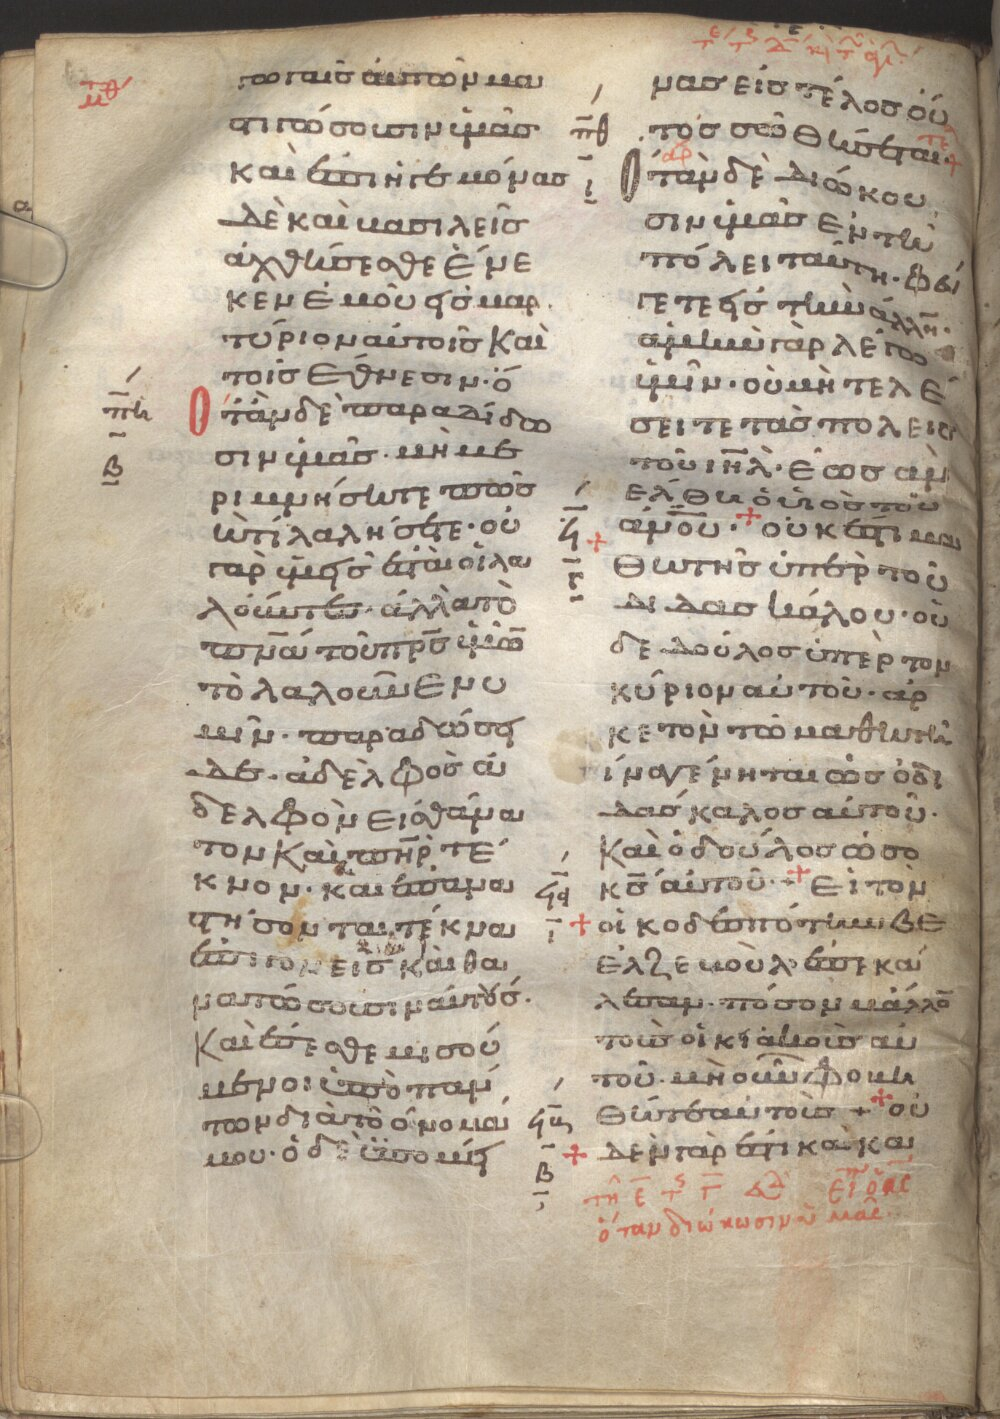 τωγαῖς αὐτῶν μα
στιγώσουσιν ὑμᾶς
καὶ ἐπὶ ἡγεμόνας
δὲ καὶ βασιλεῖς
ἀχθήσεσθε ἕνε
κεν ἐμοῦ εἰς μαρ
τύριον αὐτοῖς καὶ
τοῖς ἔθνεσιν· ὅ
ὅταν δὲ παραδιδῶ
σιν ὑμᾶς· μὴ με
ριμνήσητε πῶς
ἢ τί λαλήσετε· οὐ
γὰρ ὑμεῖς ἐσταὶ οἱ λα
λοῦντες· ἀλλὰ τὸ
πν̅α̅ τοῦ πρ̅ς ὑμῶν
τὸ λαλοῦν ἐν ὑ
μῖν· παραδώσει
δὲ· ἀδελφὸς ἀ
δελφὸν εἰς θάνα
τον καὶ πη̅ρ τέ
κνον· καὶ ἐπανα
στήσονται τέκνα
ἐπὶ γονεῖς καὶ θα
νατώσουσιν αὐτούς·
Καὶ ἔσεσθε μισού
μενοι ὑπὸ πάν
των διὰ τὸ ὄνομά
μου· ὁ δὲ ὑπομεί
νας εἰς τέλος οὗ
τος σωθήσεται· τε
ὅταν δὲ διώκου
σιν ὑμᾶς ἐν τῇ
πόλει ταύτῃ· φεύ
γετε εἰς τὴν ἄλλην·
ἀμὴν γὰρ λέγω
ὑμῖν· οὐ μὴ τελέ
σειτε τὰς πόλεις
τοῦ ιη̅λ· ἕως ἂν
ἔλθῃ ὁ υἱὸς τοῦ
ἀν̅ο̅υ· οὐκ ἔστι μα
θητὴς ὑπὲρ τοῦ
διδασκάλου· οὐ
δὲ δοῦλος ὑπὲρ τὸν
κύριον αὐτοῦ· ἀρ
κετὸν τῷ μαθητῇ
ἵνα γένηται ὡς ὁ δι
δάσκαλος αὐτοῦ·
Καὶ ὁ δοῦλος ὡς ὁ
κ̅ς̅ αὐτοῦ· + εἰ τὸν
οἰκοδεσπότην βε
ελζεβοὺλ ἐπεκά
λεσαν· πόσον μᾶλλον
τοὺς οἰκιακοὺς αὐ
τοῦ· μὴ οὖν φοβη
θῆτε αὐτούς + οὐ
δὲν γάρ ἐστι κεκα
ὅταν διώκωσιν ὑμᾶς